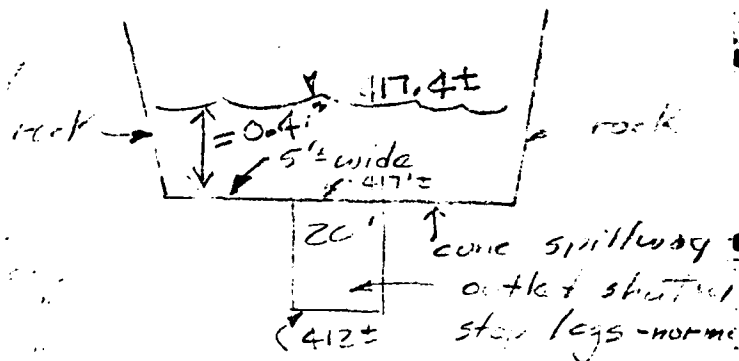 417.4±
rock
= 0.4'±
rock
5'± wide
417'±
20'
conc spillway
outlet shut w
412±
stop logs - norma